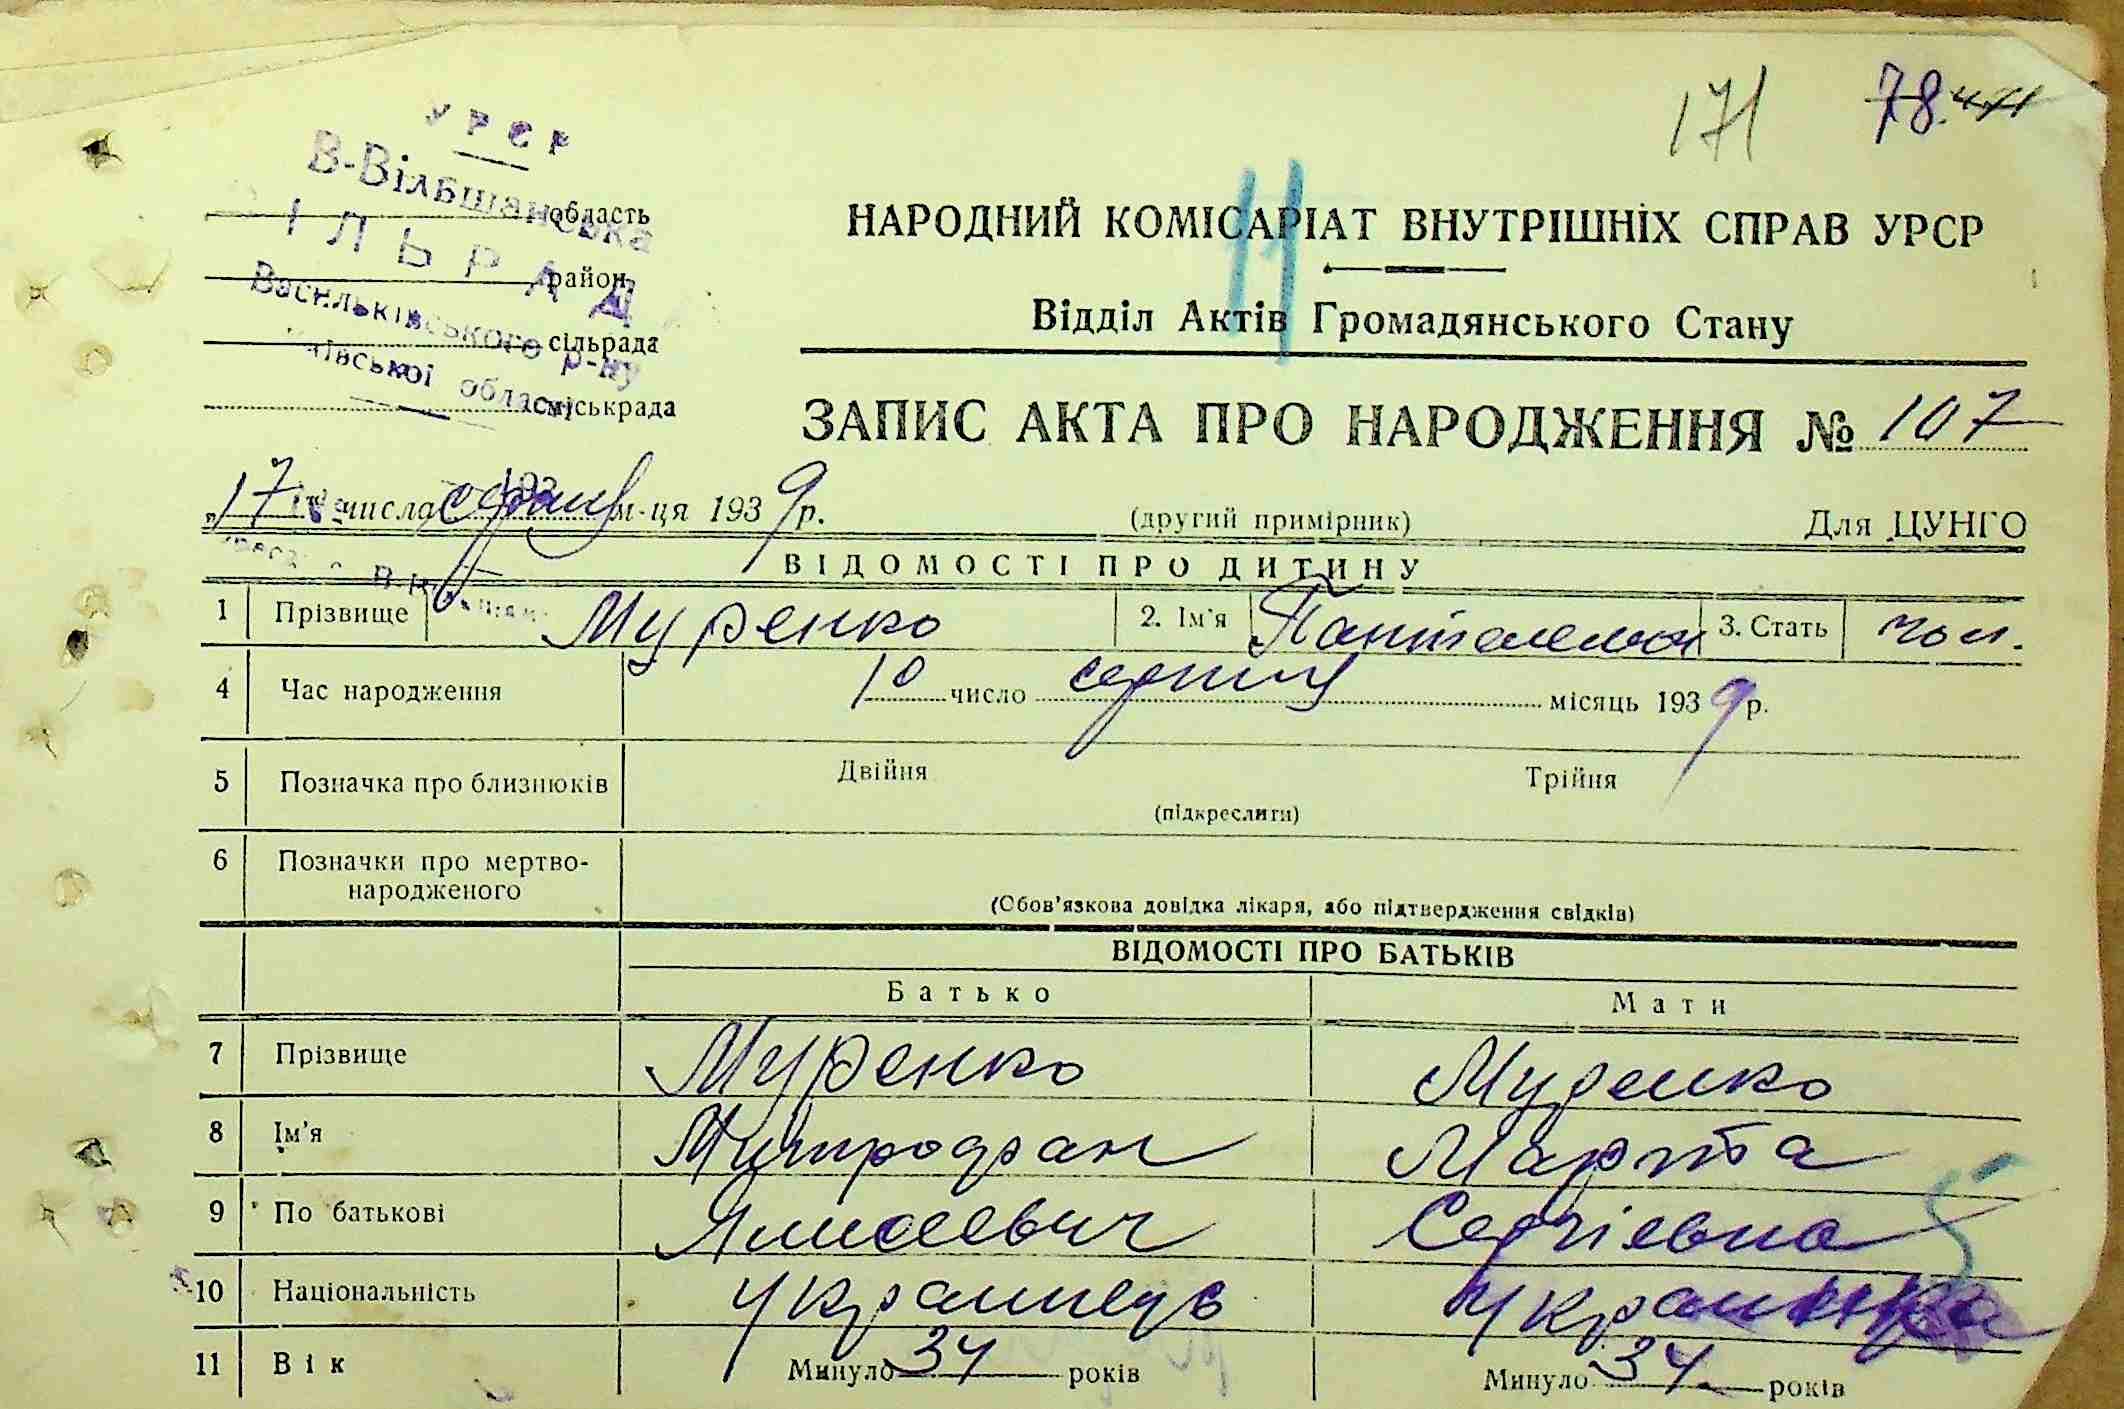 171 78.
УРСР
В-Вільшанська
область
СІЛЬРАДА
район
Васильківського р-ну
сільрада
Київської області
міськрада
НАРОДНИЙ КОМІСАРІАТ ВНУТРІШНІХ СПРАВ УРСР
11
Відділ Актів Громадянського Стану
ЗАПИС АКТА ПРО НАРОДЖЕННЯ № 107
„17 числа серпня м-ця 1939 р. (другий примірник) Для ЦУНГО
ВІДОМОСТІ ПРО ДИТИНУ
1 Прізвище Муренко 2. Ім'я Пантелемон 3. Стать чол.
4 Час народження 10 число серпня місяць 1939 р.
5 Позначка про близнюків Двійня Трійня
(підкреслити)
6 Позначки про мертво-
народженого
(Обов'язкова довідка лікаря, або підтвердження свідків)
ВІДОМОСТІ ПРО БАТЬКІВ
Батько Мати
7 Прізвище Муренко Муренко
8 Ім'я Митрофан Марта
9 По батькові Алисеевич Сергіевна
10 Національність Украинець Украинка
11 Вік Минуло 34 років Минуло 34 років